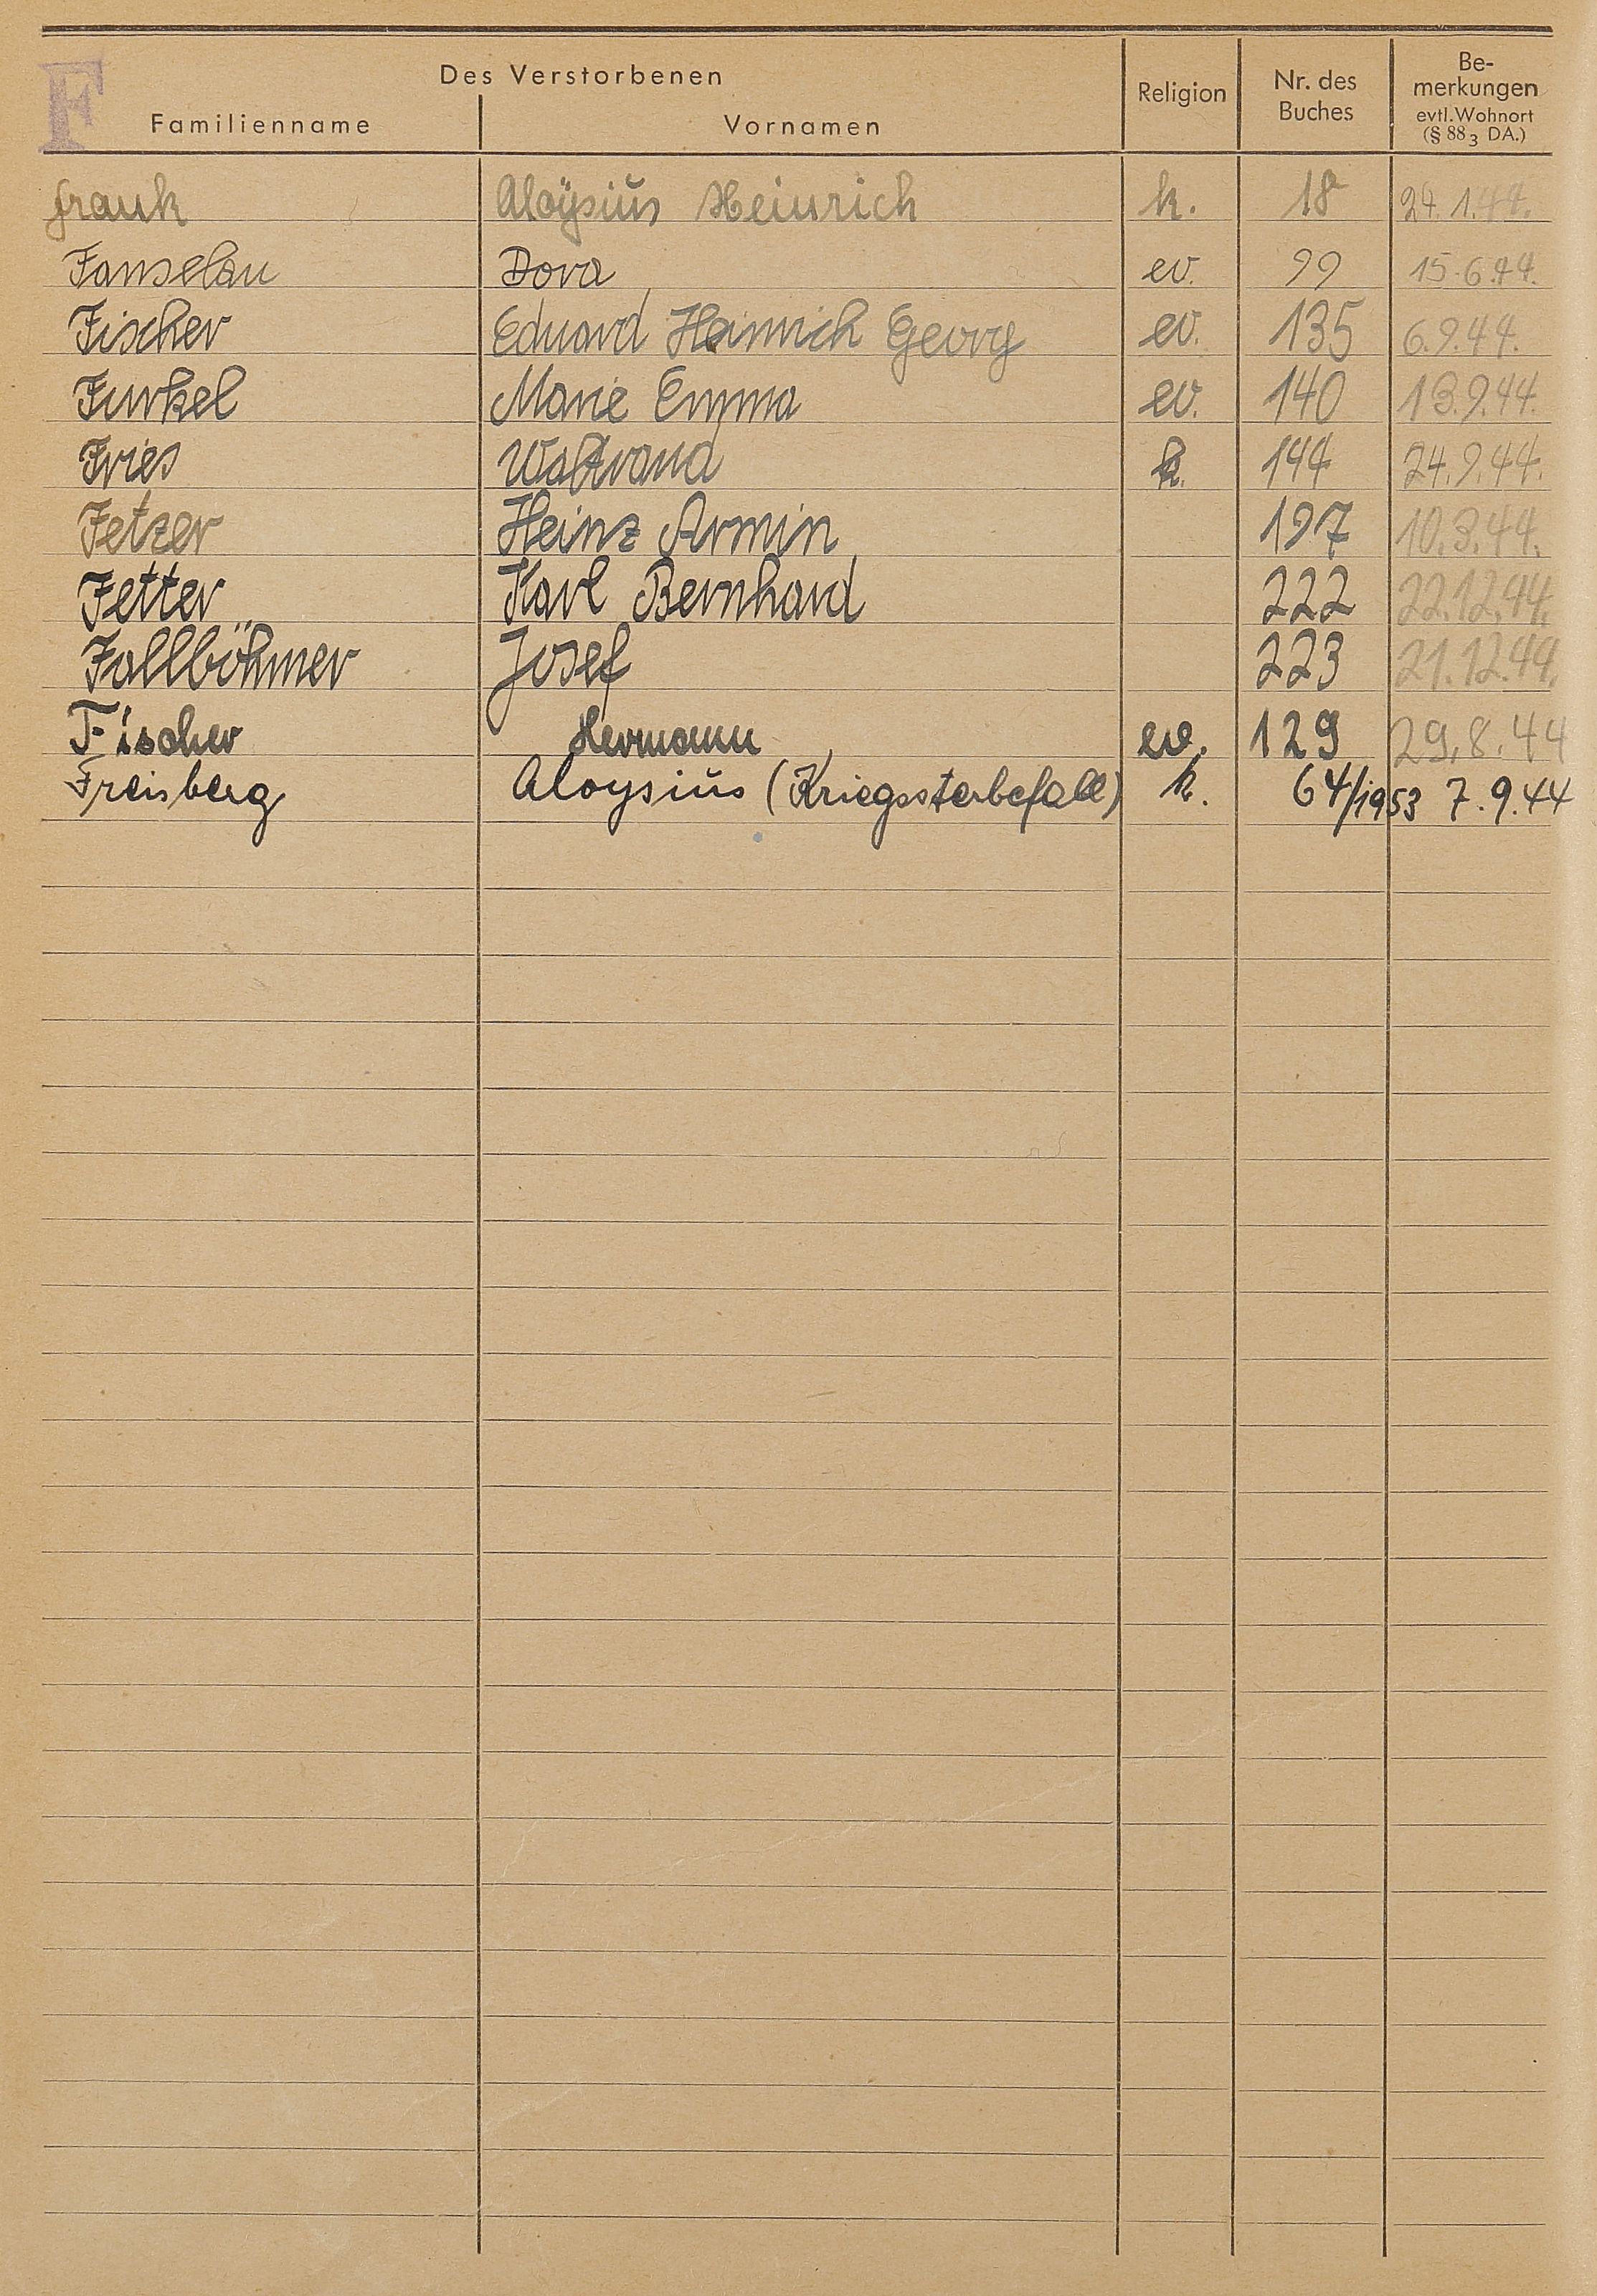 F
Des Verstorbenen
Familienname Vornamen Religion Nr. des Buches Be-merkungen evtl. Wohnort (§ 88 3 DA.)
Frank Aloÿsius Heinrich k. 18 24. 1. 44.
Fanselau Dora ev. 99 15. 6. 44.
Fischer Eduard Heinrich Georg ev. 135 6. 9. 44.
Furkel Marie Emma ev. 140 13. 9. 44.
Fries Waltraud k. 144 24. 9. 44.
Fetzer Heinz Armin 197 44.
Fetter Karl Bernhard 222 22. 12. 44.
Fallböhmer Josef 223 21. 12. 44.
Fischer Hermann ev. 129 29. 8. 44
Freisberg Aloysius (Kriegssterbefall) k. 64/1953 7. 9. 44